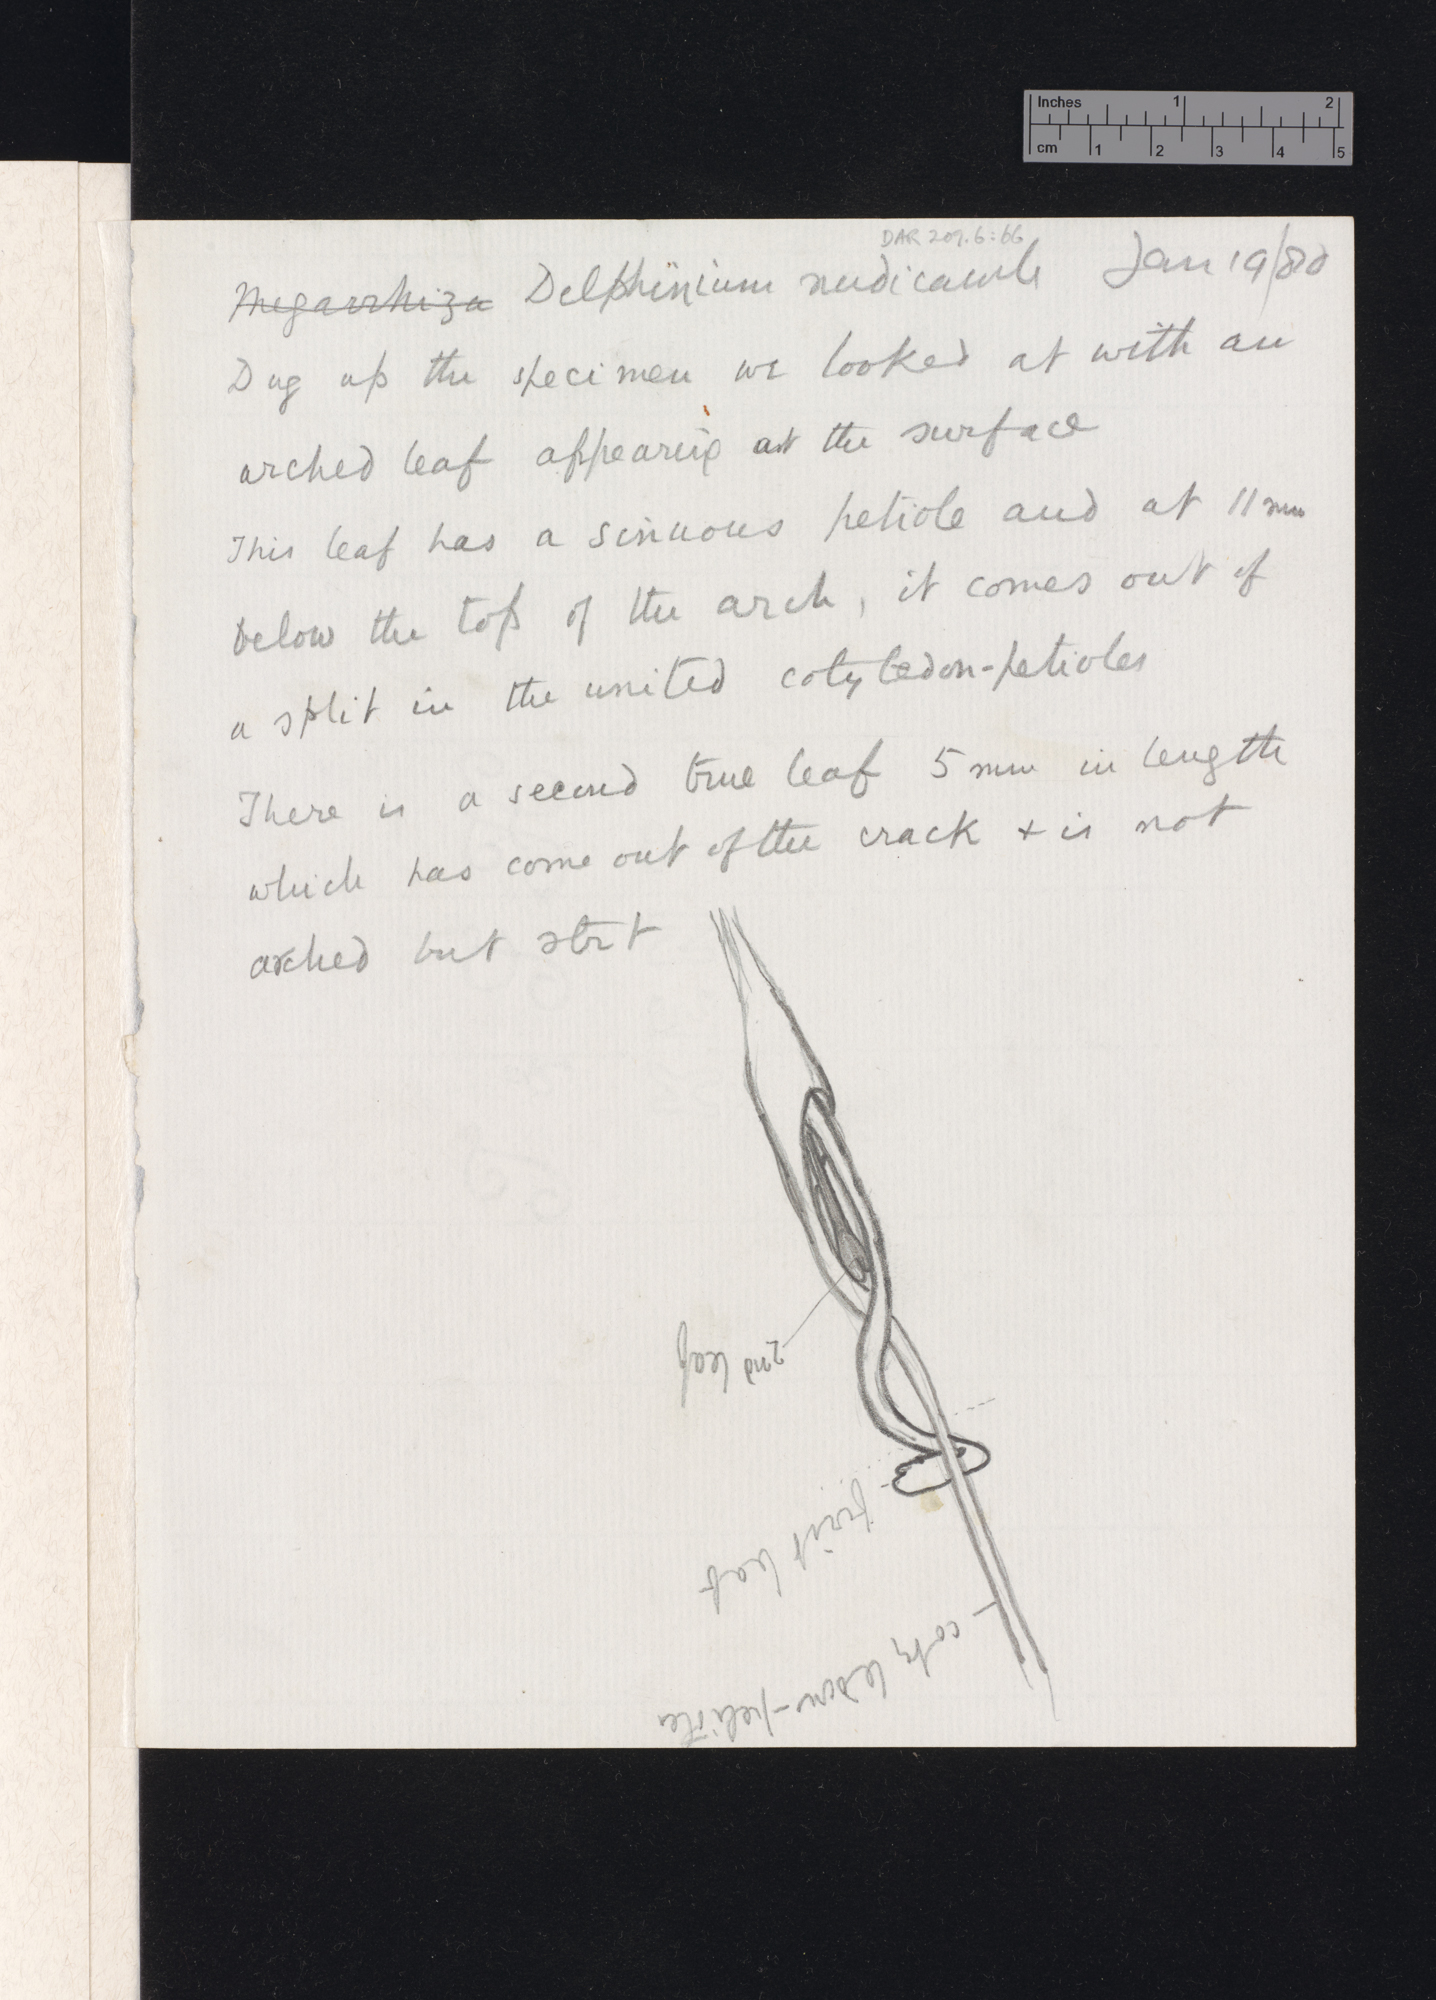 Inches 1 2
cm 1 2 3 4 5
DAR 209.6:66
Megarrhiza Delphinium nudicaule Jan 19/80
Dug up the specimen we looked at with an
arched leaf appearing at the surface
This leaf has a sinuous petiole and at 11 mm
below the top of the arch, it comes out of
a split in the united cotyledon-petioles
There is a second true leaf 5 mm in length
which has come out of the crack + is not
arched but strt
2nd leaf
first leaf
cotyledon-petioles